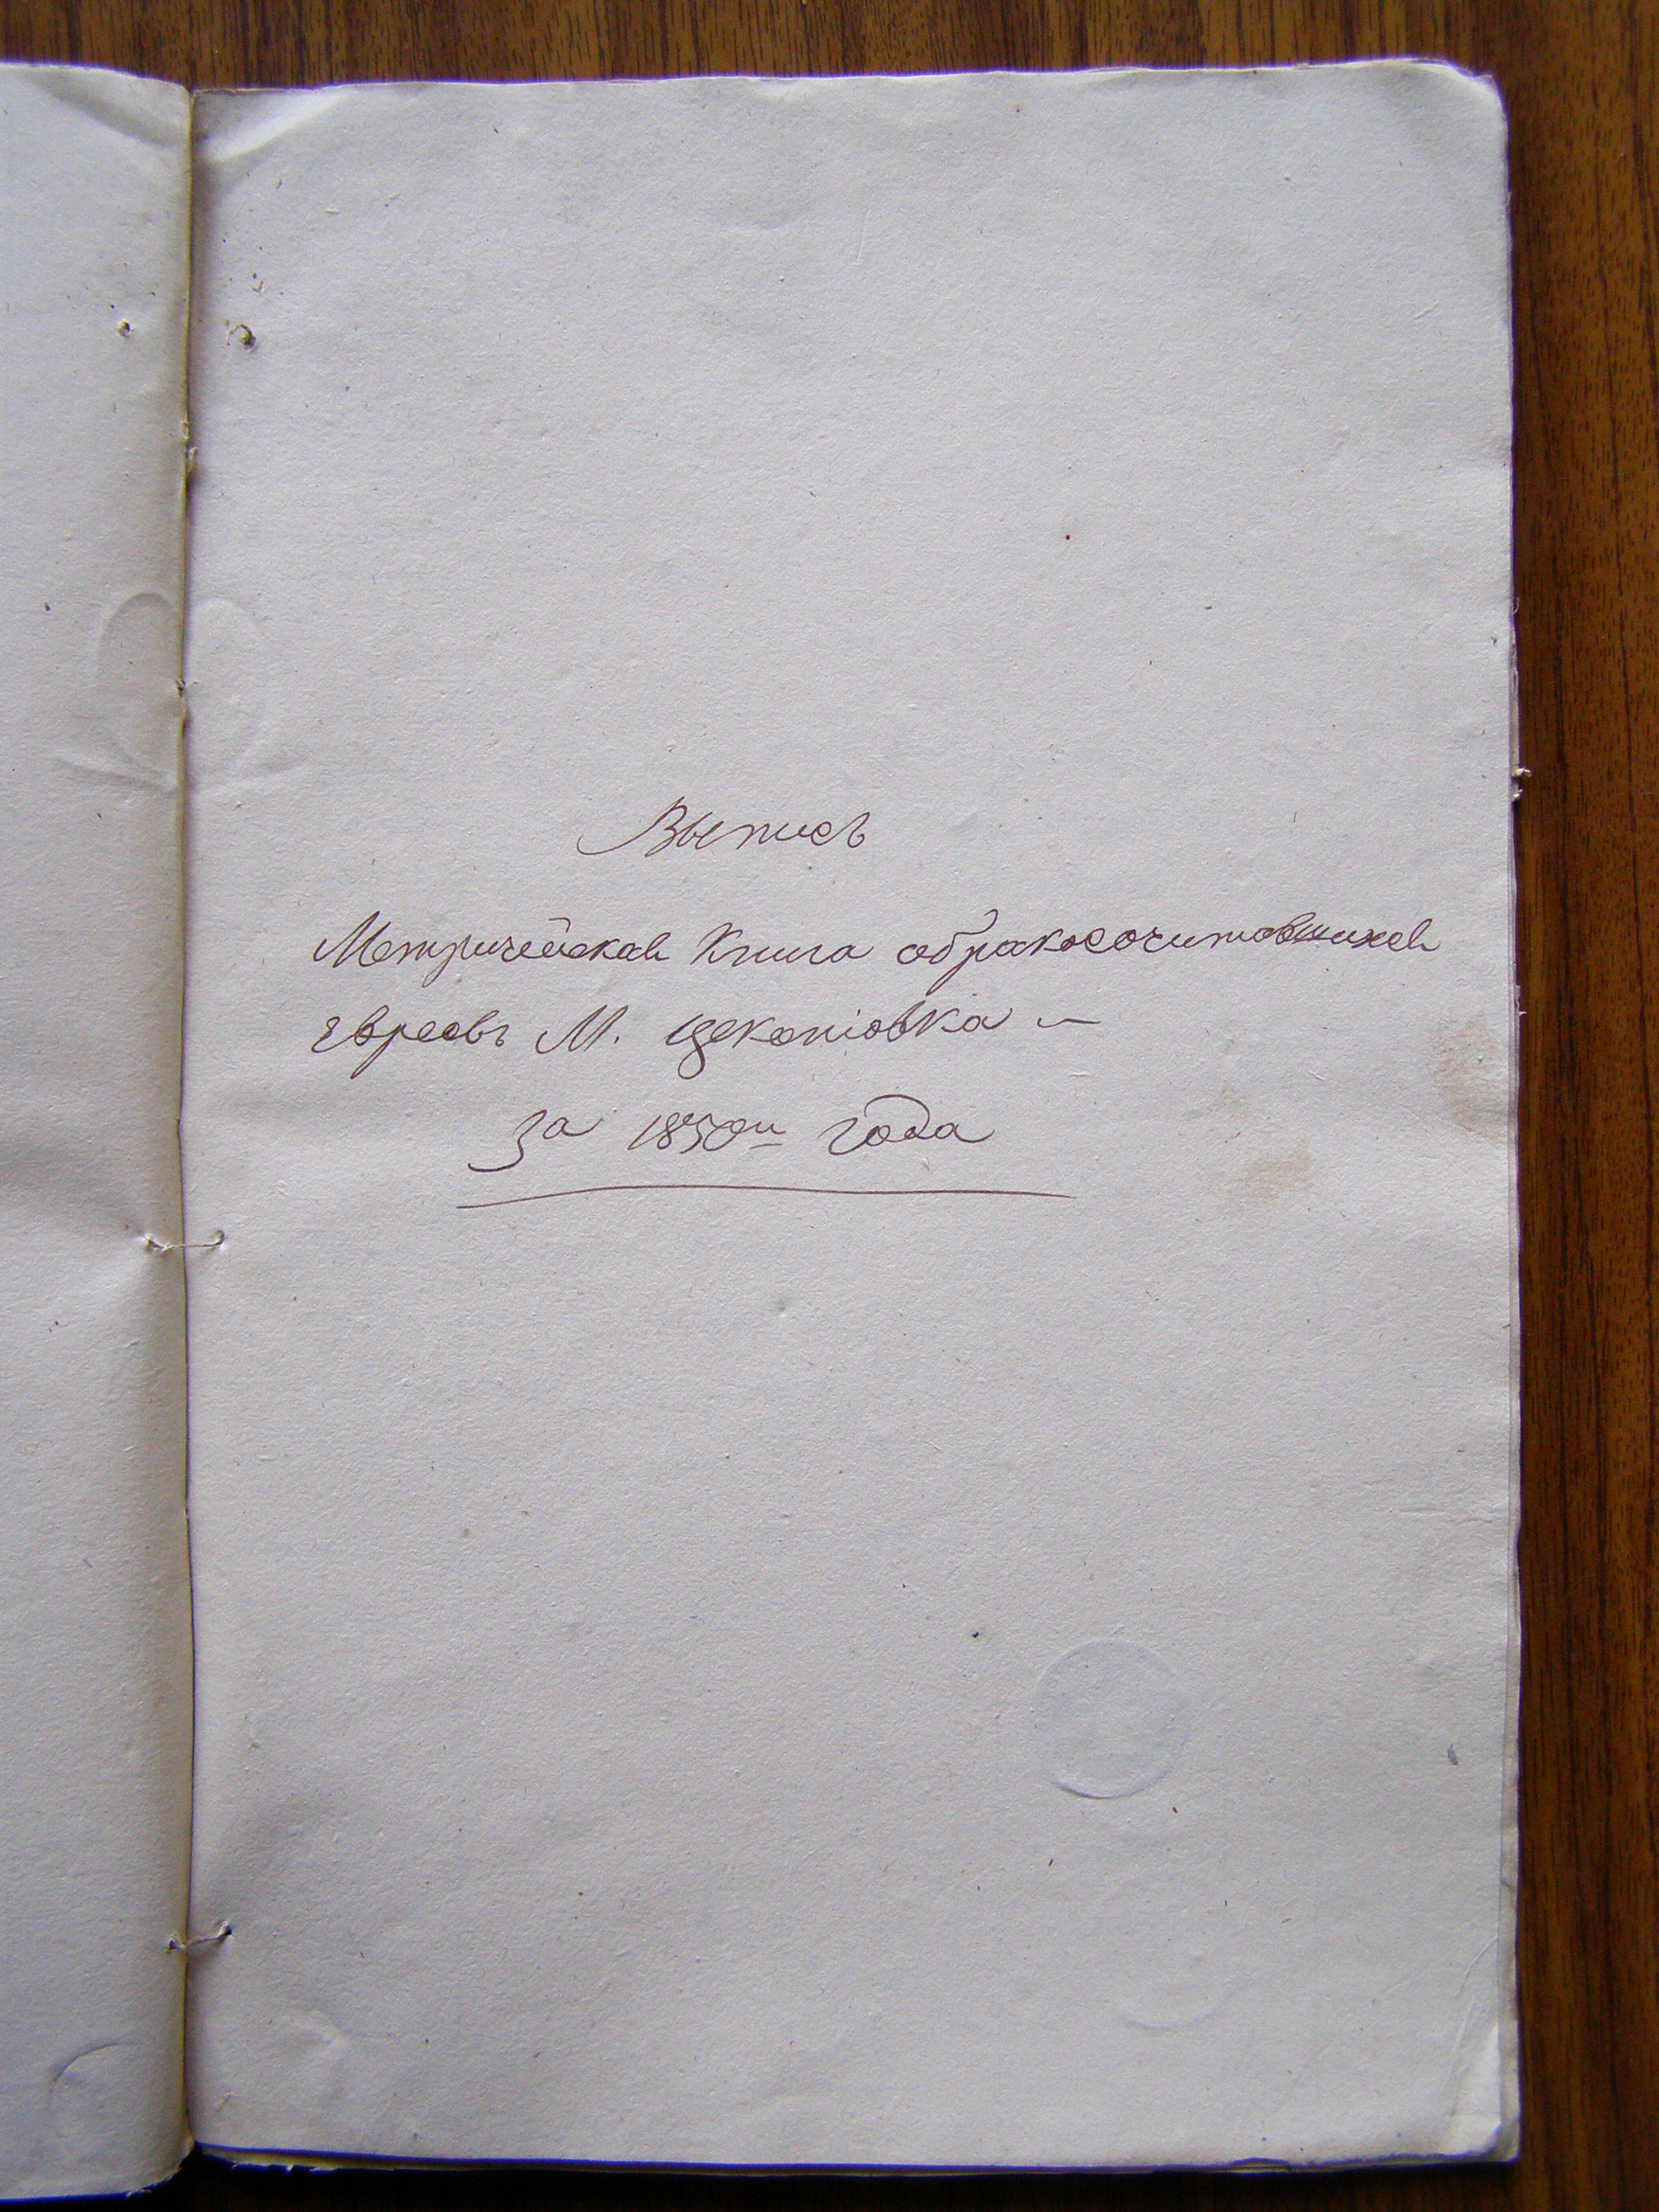 Выпись
Метрическая Книга обракосочитовшихся
евреевъ М. Цекотовка
За 1850й года